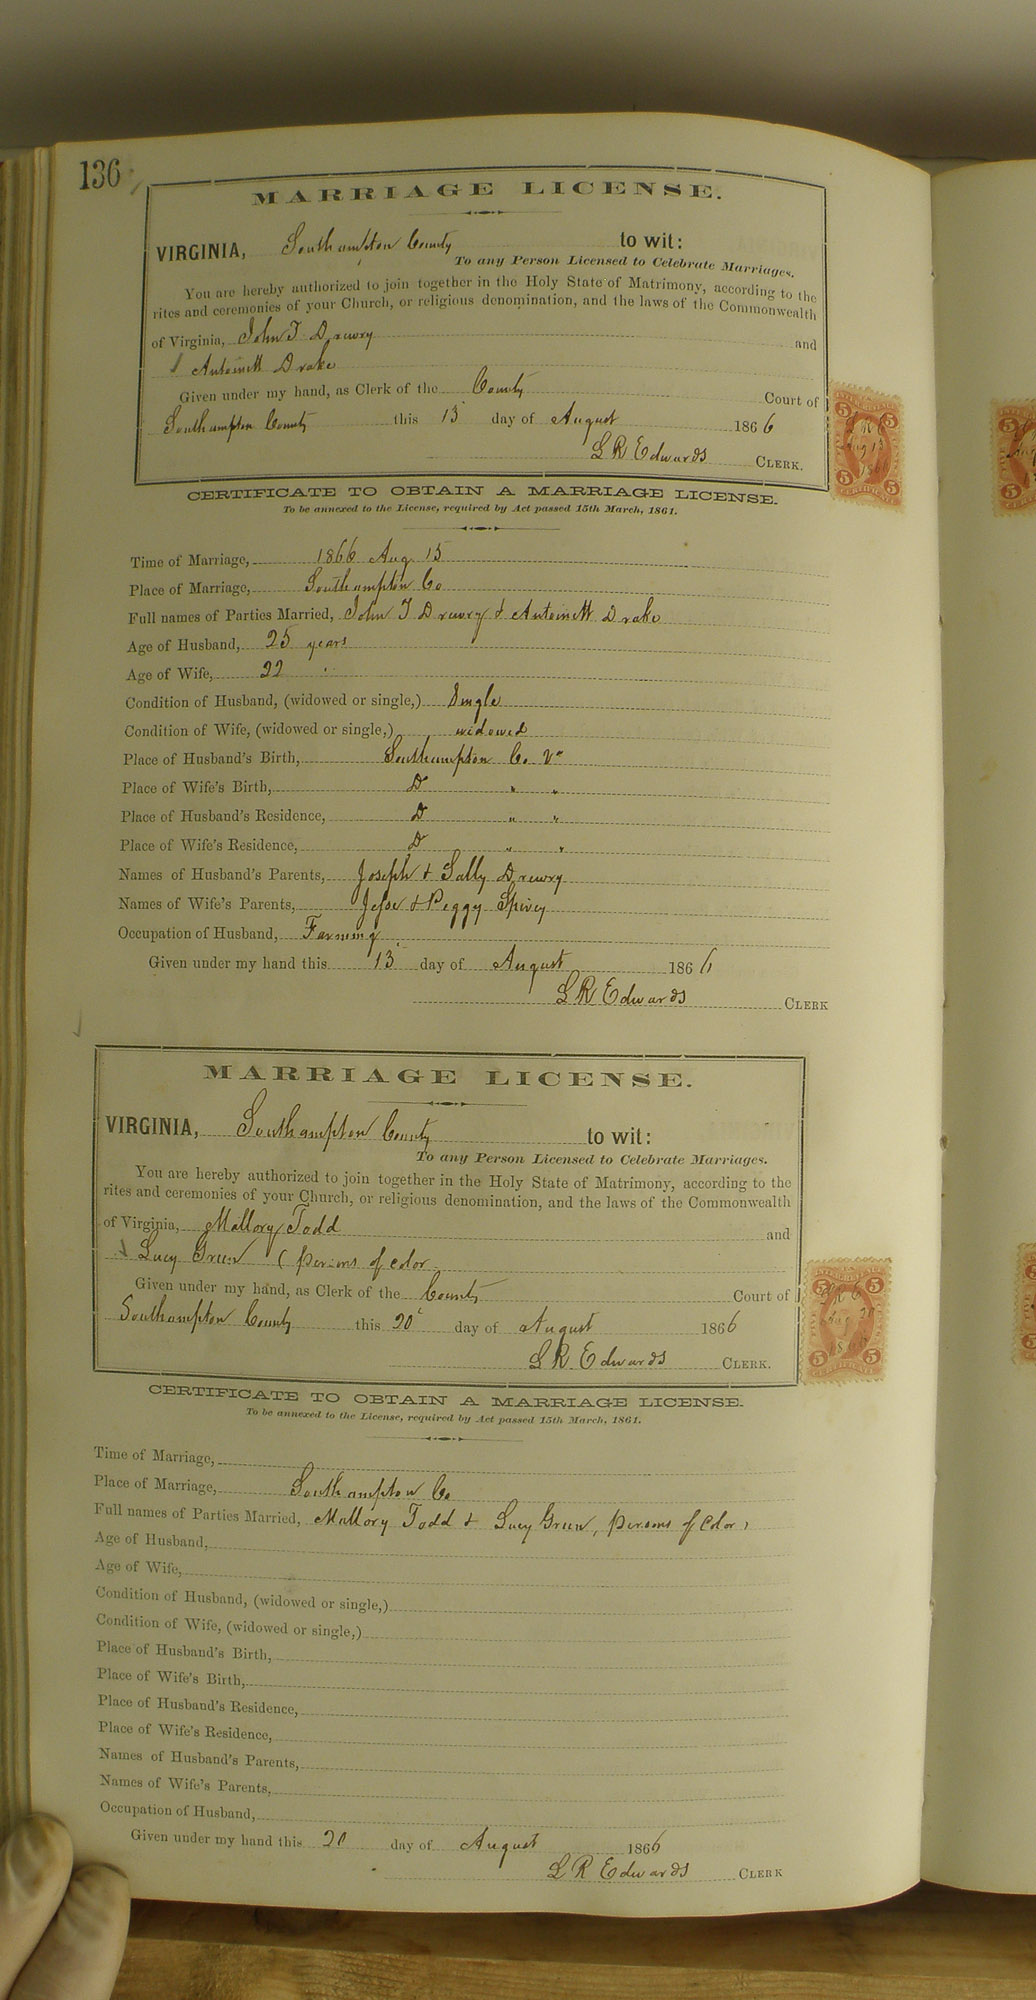 136
MARRIAGE LICENSE.
VIRGINIA, Southampton County to wit:
To any Person Licensed to Celebrate Marriages.
You are hereby authorized to join together in the Holy State of Matrimony, according to the
rites and ceremonies of your Church, or religious denomination, and the laws of the Commonwealth
of Virginia, John T Drewry and
Antoinett Drake
Given under my hand, as Clerk of the County Court of
Southampton County this 13 day of August 1866
L R Edwards CLERK.
CERTIFICATE TO OBTAIN A MARRIAGE LICENSE.
To be annexed to the License, required by Act passed 15th March, 1861.
Time of Marriage, 1866 Aug 15
Place of Marriage, Southampton Co
Full names of Parties Married, John T Drewry & Antoinett Drake
Age of Husband, 25 years
Age of Wife, 22 "
Condition of Husband, (widowed or single,) Single
Condition of Wife, (widowed or single,) widowed
Place of Husband's Birth, Southampton Co. Va
Place of Wife's Birth, D " "
Place of Husband's Residence, D " "
Place of Wife's Residence, D " "
Names of Husband's Parents, Joseph & Sally Drewry
Names of Wife's Parents, Jesse & Peggy Spivey
Occupation of Husband, Farming
Given under my hand this 13 day of August 1866
L R Edwards CLERK
MARRIAGE LICENSE.
VIRGINIA, Southampton County to wit:
To any Person Licensed to Celebrate Marriages.
You are hereby authorized to join together in the Holy State of Matrimony, according to the
rites and ceremonies of your Church, or religious denomination, and the laws of the Commonwealth
of Virginia, Mallory Todd and
Lucy Green (persons of color
Given under my hand, as Clerk of the County Court of
Southampton County this 20 day of August 1866
L R Edwards CLERK.
CERTIFICATE TO OBTAIN A MARRIAGE LICENSE.
To be annexed to the License, required by Act passed 15th March, 1861.
Time of Marriage,
Place of Marriage, Southampton Co
Full names of Parties Married, Mallory Todd & Lucy Green, persons of Color,
Age of Husband,
Age of Wife,
Condition of Husband, (widowed or single,)
Condition of Wife, (widowed or single,)
Place of Husband's Birth,
Place of Wife's Birth,
Place of Husband's Residence,
Place of Wife's Residence,
Names of Husband's Parents,
Names of Wife's Parents,
Occupation of Husband,
Given under my hand this 20 day of August 1866
L R Edwards CLERK